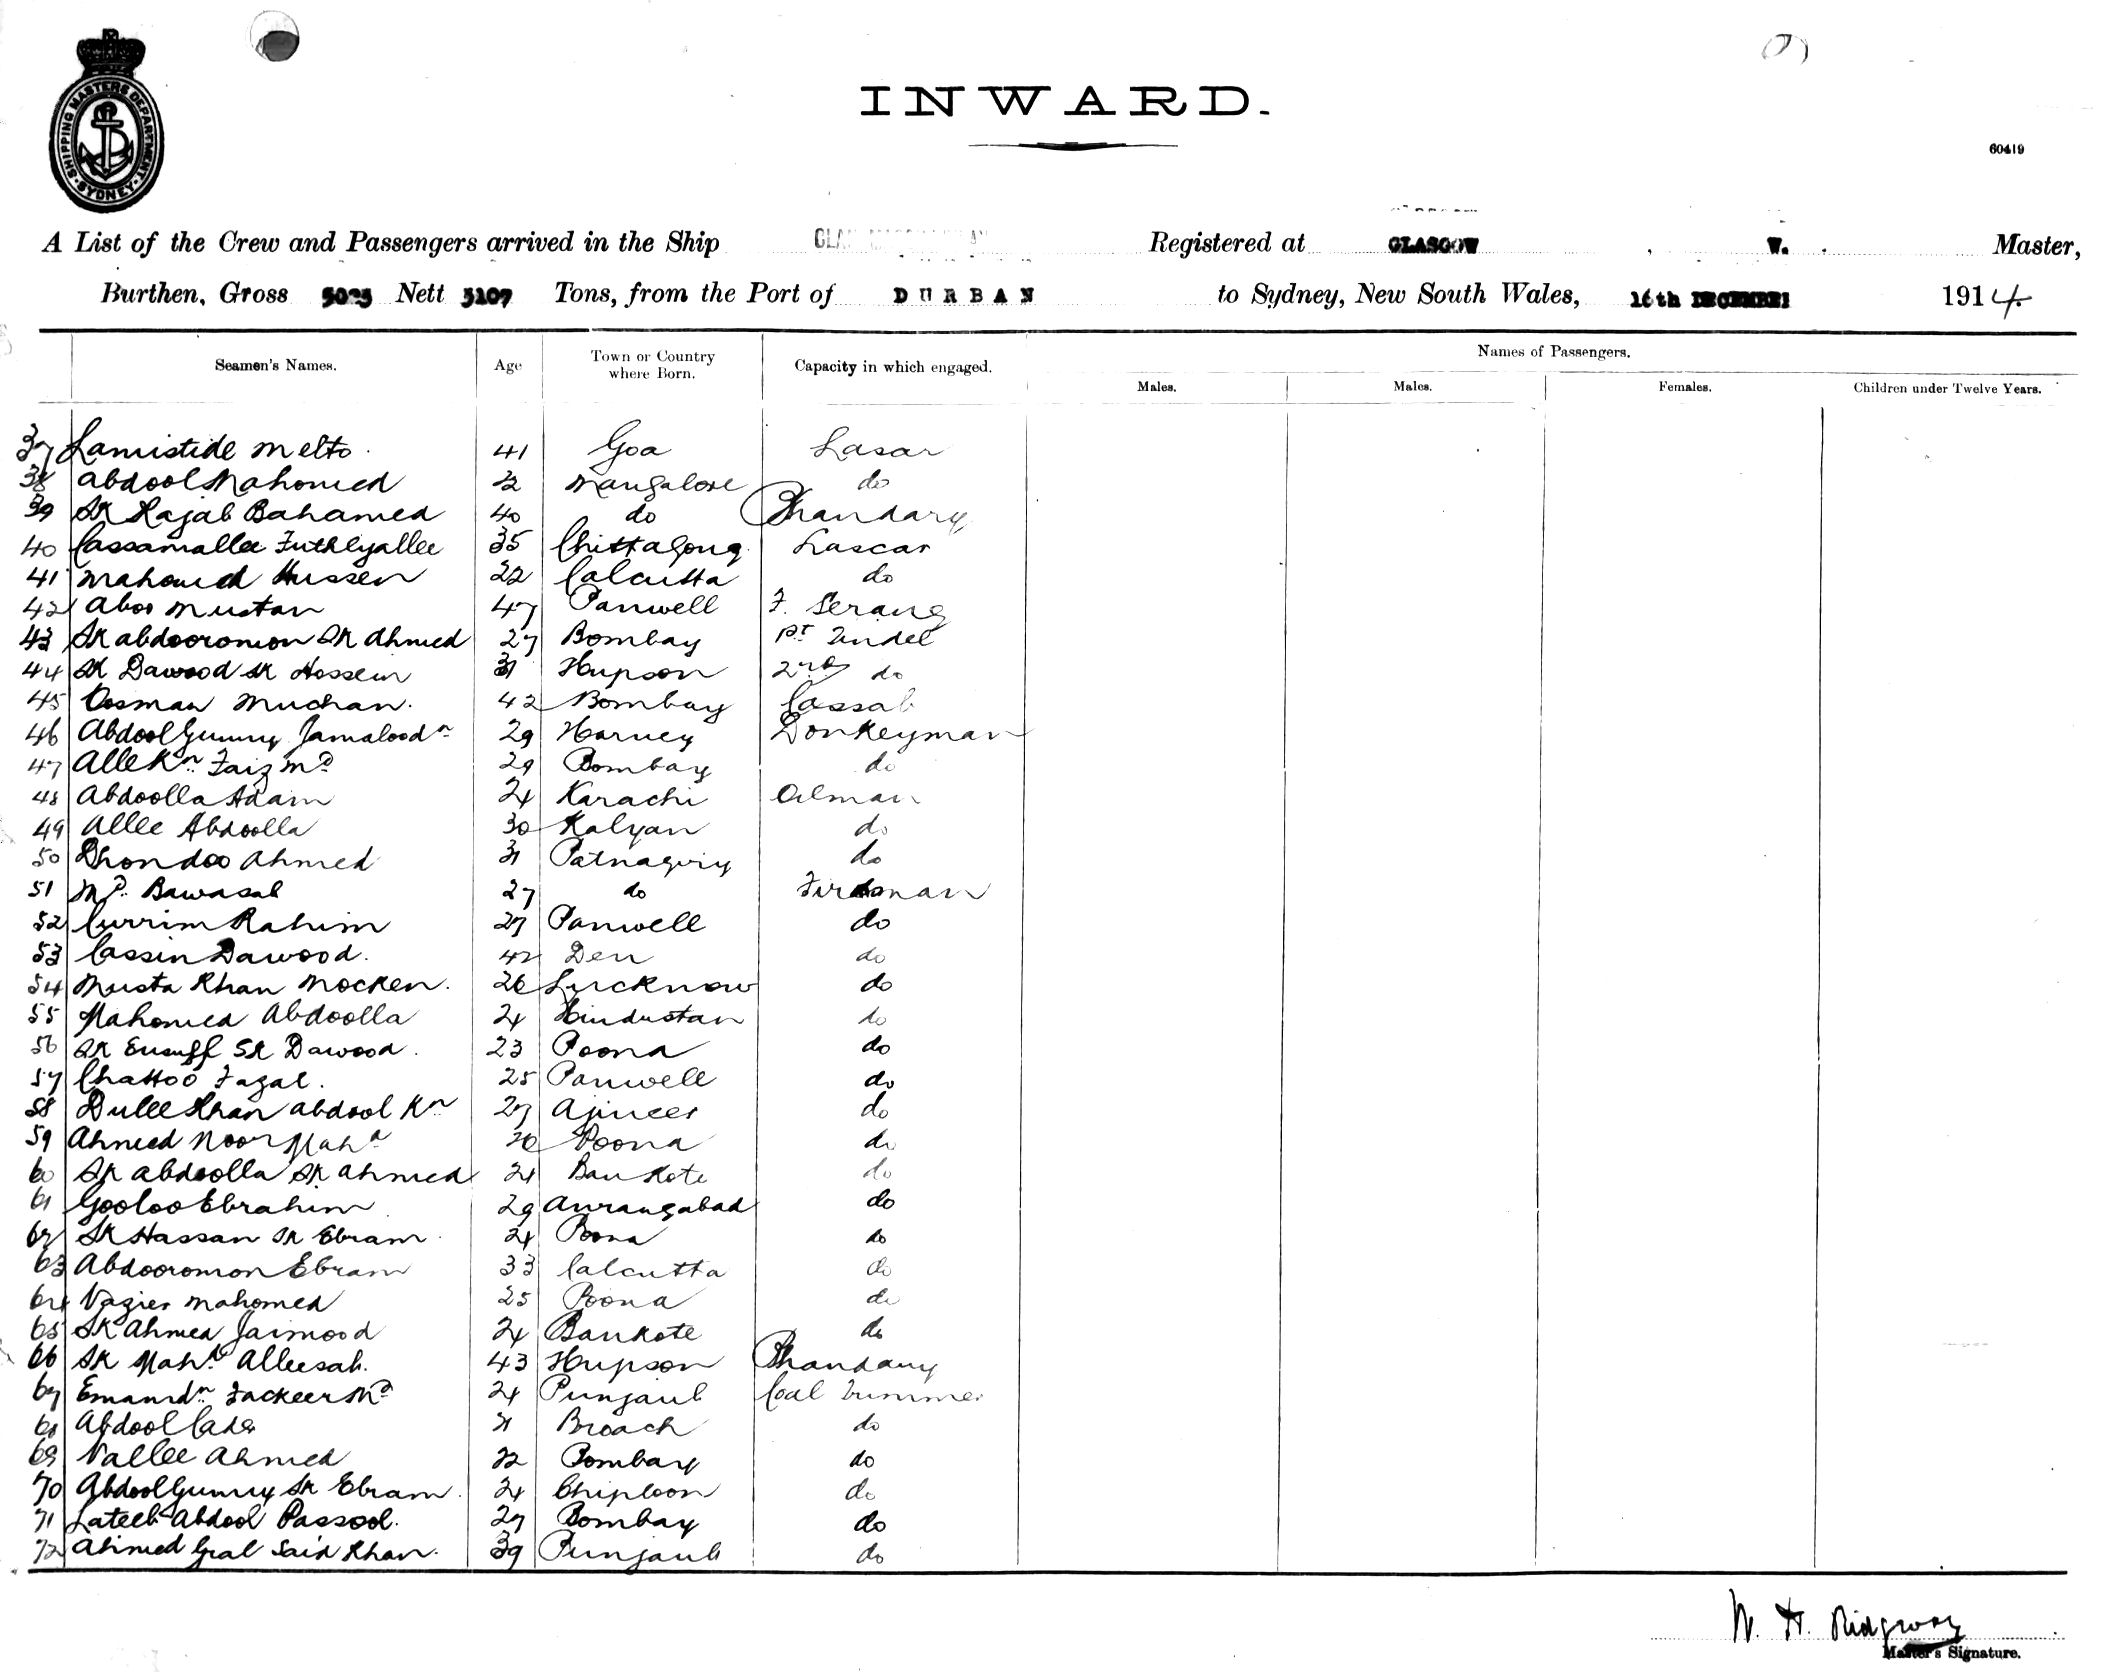 SHIPPING MASTERS DEPARTMENT
SYDNEY
INWARD.
60419
A List of the Crew and Passengers arrived in the Ship Registered at GLASGOW , W. Master,
Burthen, Gross Nett 3107 Tons, from the Port of DURBAN to Sydney, New South Wales, 16th DECEMBER 1914.
Seamen's Names. Age Town or Country where Born. Capacity in which engaged. Names of Passengers.
Males. Males. Females. Children under Twelve Years.
37 Lamistide Melto. 41 Goa Lasar
38 Abdool Mahomed 32 Mangalore do
39 Sk Rajab Bahamed 40 do Bhandary
40 Cassamallee Futhlyallee 35 Chittagong Lascar
41 Mahomed Hussen 22 Calcutta do
42 Aboo Mustan 47 Panwell F. Serang
43 Sk Abdooromon Sk Ahmed 27 Bombay 1st Tindel
44 Sk Dawood Sk Hossein 31 Hupson 2nd do
45 Oosman Muchan. 42 Bombay Cassab
46 Abdool Gunny Jamalood n 29 Harney Donkeyman
47 Alle Kn Faiz Md 29 Bombay do
48 Abdoolla Adam 24 Karachi Oilman
49 Allee Abdoolla 30 Kalyan do
50 Dhondoo Ahmed 31 Ratnagiry do
51 Md. Bawasab 27 do Fireman
52 Currim Rahim 27 Panwell do
53 Cassin Dawood. 42 Den do
54 Musta Khan Mocken. 26 Lucknow do
55 Mahomed Abdoolla 24 Hindustan do
56 Sk Eusuff Sk Dawood. 23 Poona do
57 Chattoo Fazal. 25 Panwell do
58 Dulle Khan Abdool Kn 27 Ajmeer do
59 Ahmed Noor Mahd 26 Poona do
60 Sk Abdoolla Sk Ahmed 24 Bankote do
61 Gooloo Ebrahim 29 Aurangabad do
62 Sk Hassan Sk Ebram 24 Poona do
63 Abdooromon Ebram 33 Calcutta do
64 Vazier Mahomed 25 Poona do
65 Sk Ahmed Jaimood 24 Bankote do
66 Sk Mahd Alleesab. 43 Hupson Bhandary
67 Emamdn Fackeer Md 24 Punjaub Coal Trimmer
68 Abdool Cader 21 Broach do
69 Vallee Ahmed 22 Bombay do
70 Abdool Gunny Sk Ebram. 24 Chiploon do
71 Lateeb Abdool Rassool. 27 Bombay do
72 Ahmed Gul Said Khan. 39 Punjaub do
W. H. Ridgway
Master's Signature.